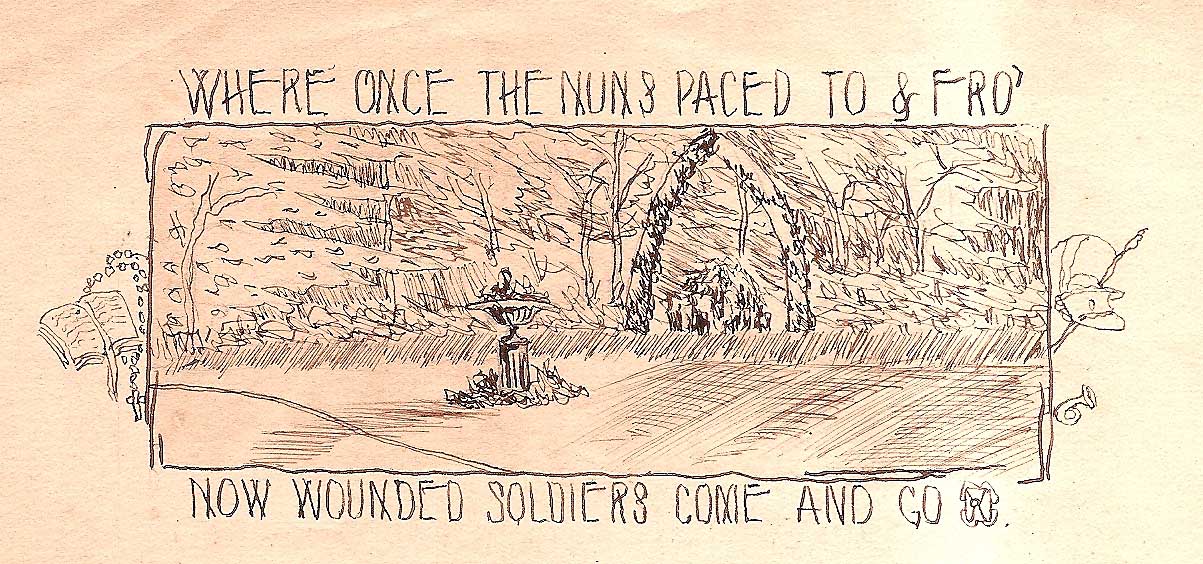 WHERE ONCE THE NUNS PACED TO & FRO'
NOW WOUNDED SOLDIERS COME AND GO